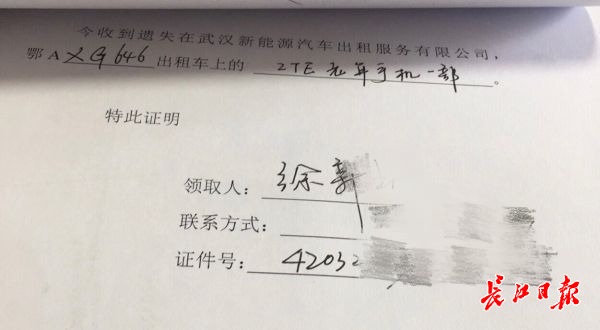 今收到遗失在武汉新能源汽车出租服务有限公司，
鄂A XG646 出租车上的 ZTE 手机一部。
特此证明
领取人：徐
联系方式：
证件号：42032
长江日报